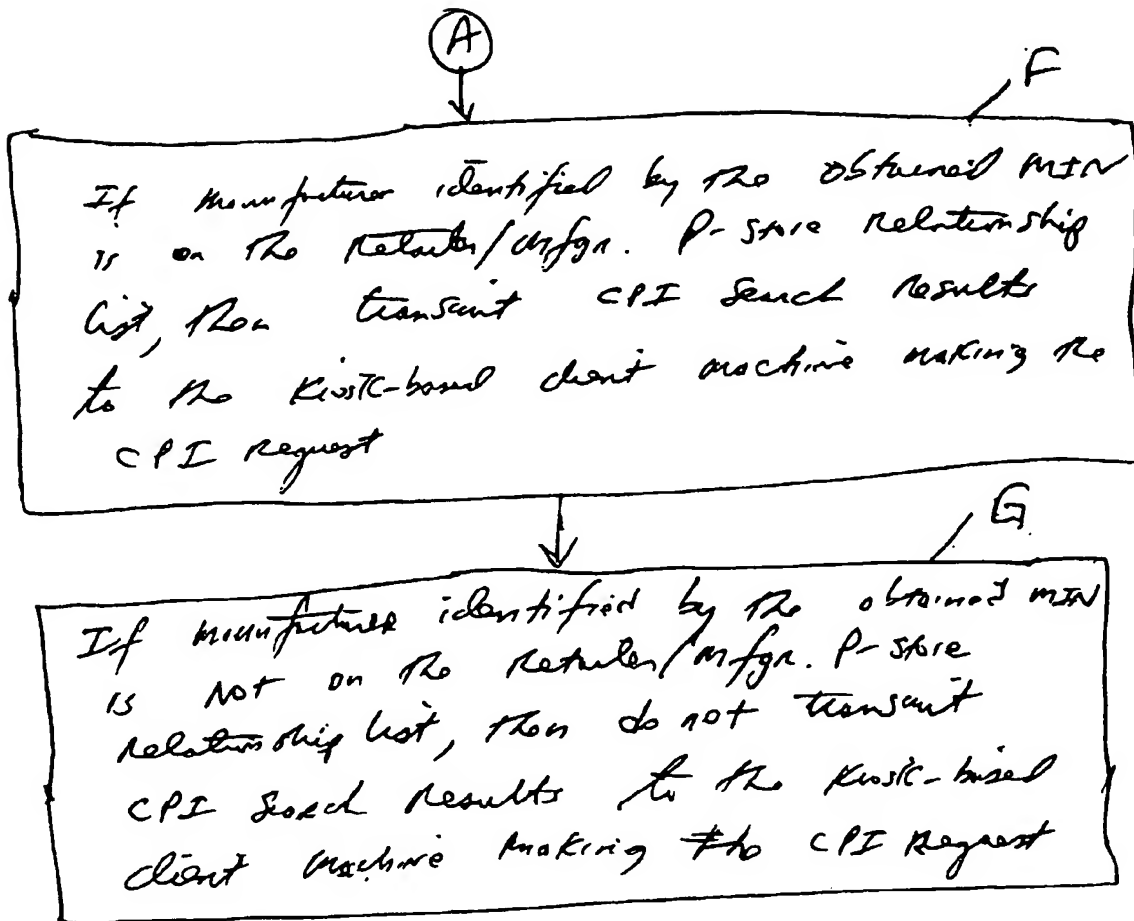 A
F
If manufacturer identified by the obtained MIN
is on the Retailer/Mfgr. P-store relationship
list, then transmit CPI Search Results
to the Kiosk-based client machine making the
CPI Request
G
If manufacturer identified by the obtained MIN
is Not on the Retailer/Mfgr. P-store
relationship list, then do not transmit
CPI Search Results to the Kiosk-based
client machine making the CPI Request